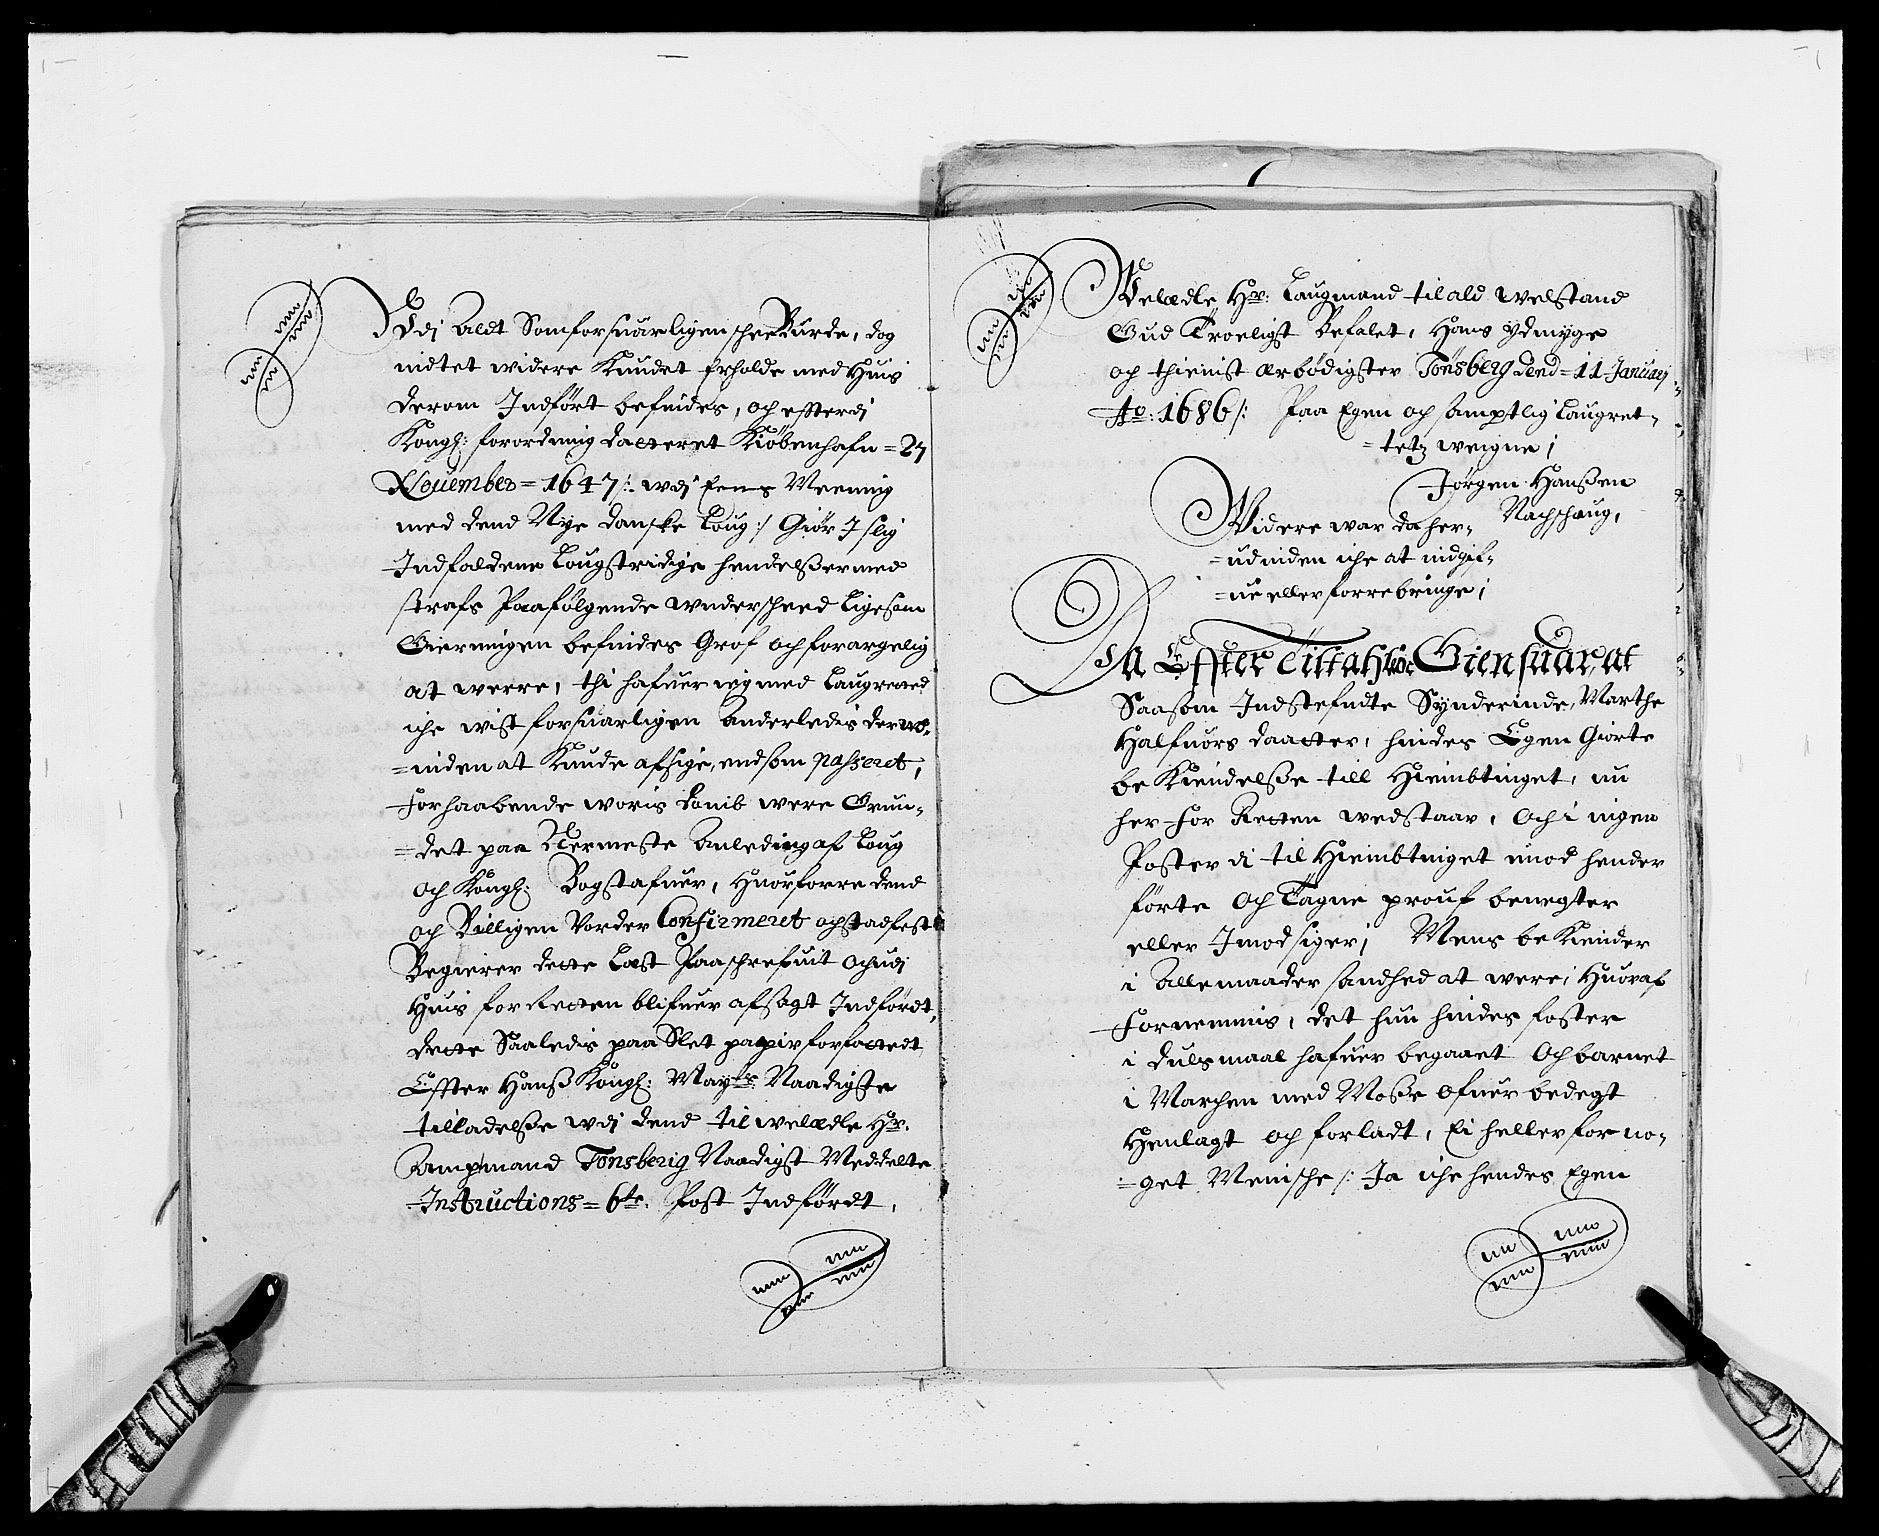 Wdj Aldt Som forsuarligen schee Burde, dog
indtet widere Kundet Erholde med Huis
derom Indført befindes, och efterdj
Kongl: forordning datteret Kiøbenhafn = 27
Nouember = 1647 /: wdj Eens Meening
med dend Nye danske Loug :/ Giør I slig
Indfaldene Lougstridige hendelßer med
strafs Paafølgende underscheed Ligesom
Gierningen befindes Grof och forargelig
at werre, thi hafuer ieg med Laugretted
iche wist forsuarligen Anderledis der wd-
=inden at Kunde afsige, end som passeret,
Forhaabende woris domb were Grun-
=det paa Nermeste Anleding af Loug
och Kongl: Bogstafuer, Huorforre dend
og Billigen Vorder Confirmeret och stadfest
Begierer dette Læst Paaschrefuit och udj
Huis for Retten blifuer afsagt Indført,
dette Saaledis paa Slet papir forfattedt
Effter Hanß Kongl: Mayts Naadigste
tilladelße wdj dend til welædle Hr.
Ampmand Tonsberig Naadigst Meddelte
Instructions = 6te. Post Indførdt,
Welædle Hr: Laugmand til ald welstand
Gud Troeligst Befalet, Hans ydmyge
och thienist ærbødigster Tønsberg dend = 11 Januarj
Ao: 1686 /: Paa Egen och samptlig Laugret-
=tetz weigne;
Jørgen Hanßen
Nachschaug,
Widere war da her-
=udinden iche at indgif-
=ue eller forrebringe;
Da Effter Tiltahle Giensuar at
Saasom Indstefndte Synderinde, Marthe
Halfuors daatter, hindes Egen Giorte
be Kiendelße till Hiembtinget, nu
her for Retten wedstaar, Och i ingen
Poster di til Hiembtinget imod hender
førte Och Tagne prouf benegter
eller Imodsiger; Mens be Kiender
i Alle maader sandhed at were; Huoraf
Fornemmis, det hun hindes foster
i dulsmaal hafuer begaaet Och barnet
i Marchen med Moße ofuer bedegt
Henlagt och forladt, Ei heller for no-
=get Menische /: Ja iche hendes Egen